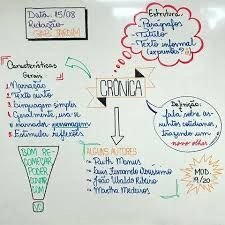 Data: 15/08
Redação
Estrutura
- Parágrafos
- Título
- Texto informal
(expressões?)
Características
Gerais:
1. Narração
2. Texto curto
3. Linguagem simples
4. Geralmente, usa-se
narrador-personagem
5. Estimula reflexões
CRÔNICA
Definição:
fala sobre as
coisas cotidianas,
trazendo um
novo olhar
BOM RE-
COMEÇAR
PODER
CONTAR
COM
ALGUNS AUTORES
Ruth Manus
Luis Fernando Veríssimo
João Ubaldo Ribeiro
Martha Medeiros
MÓD.
19/20